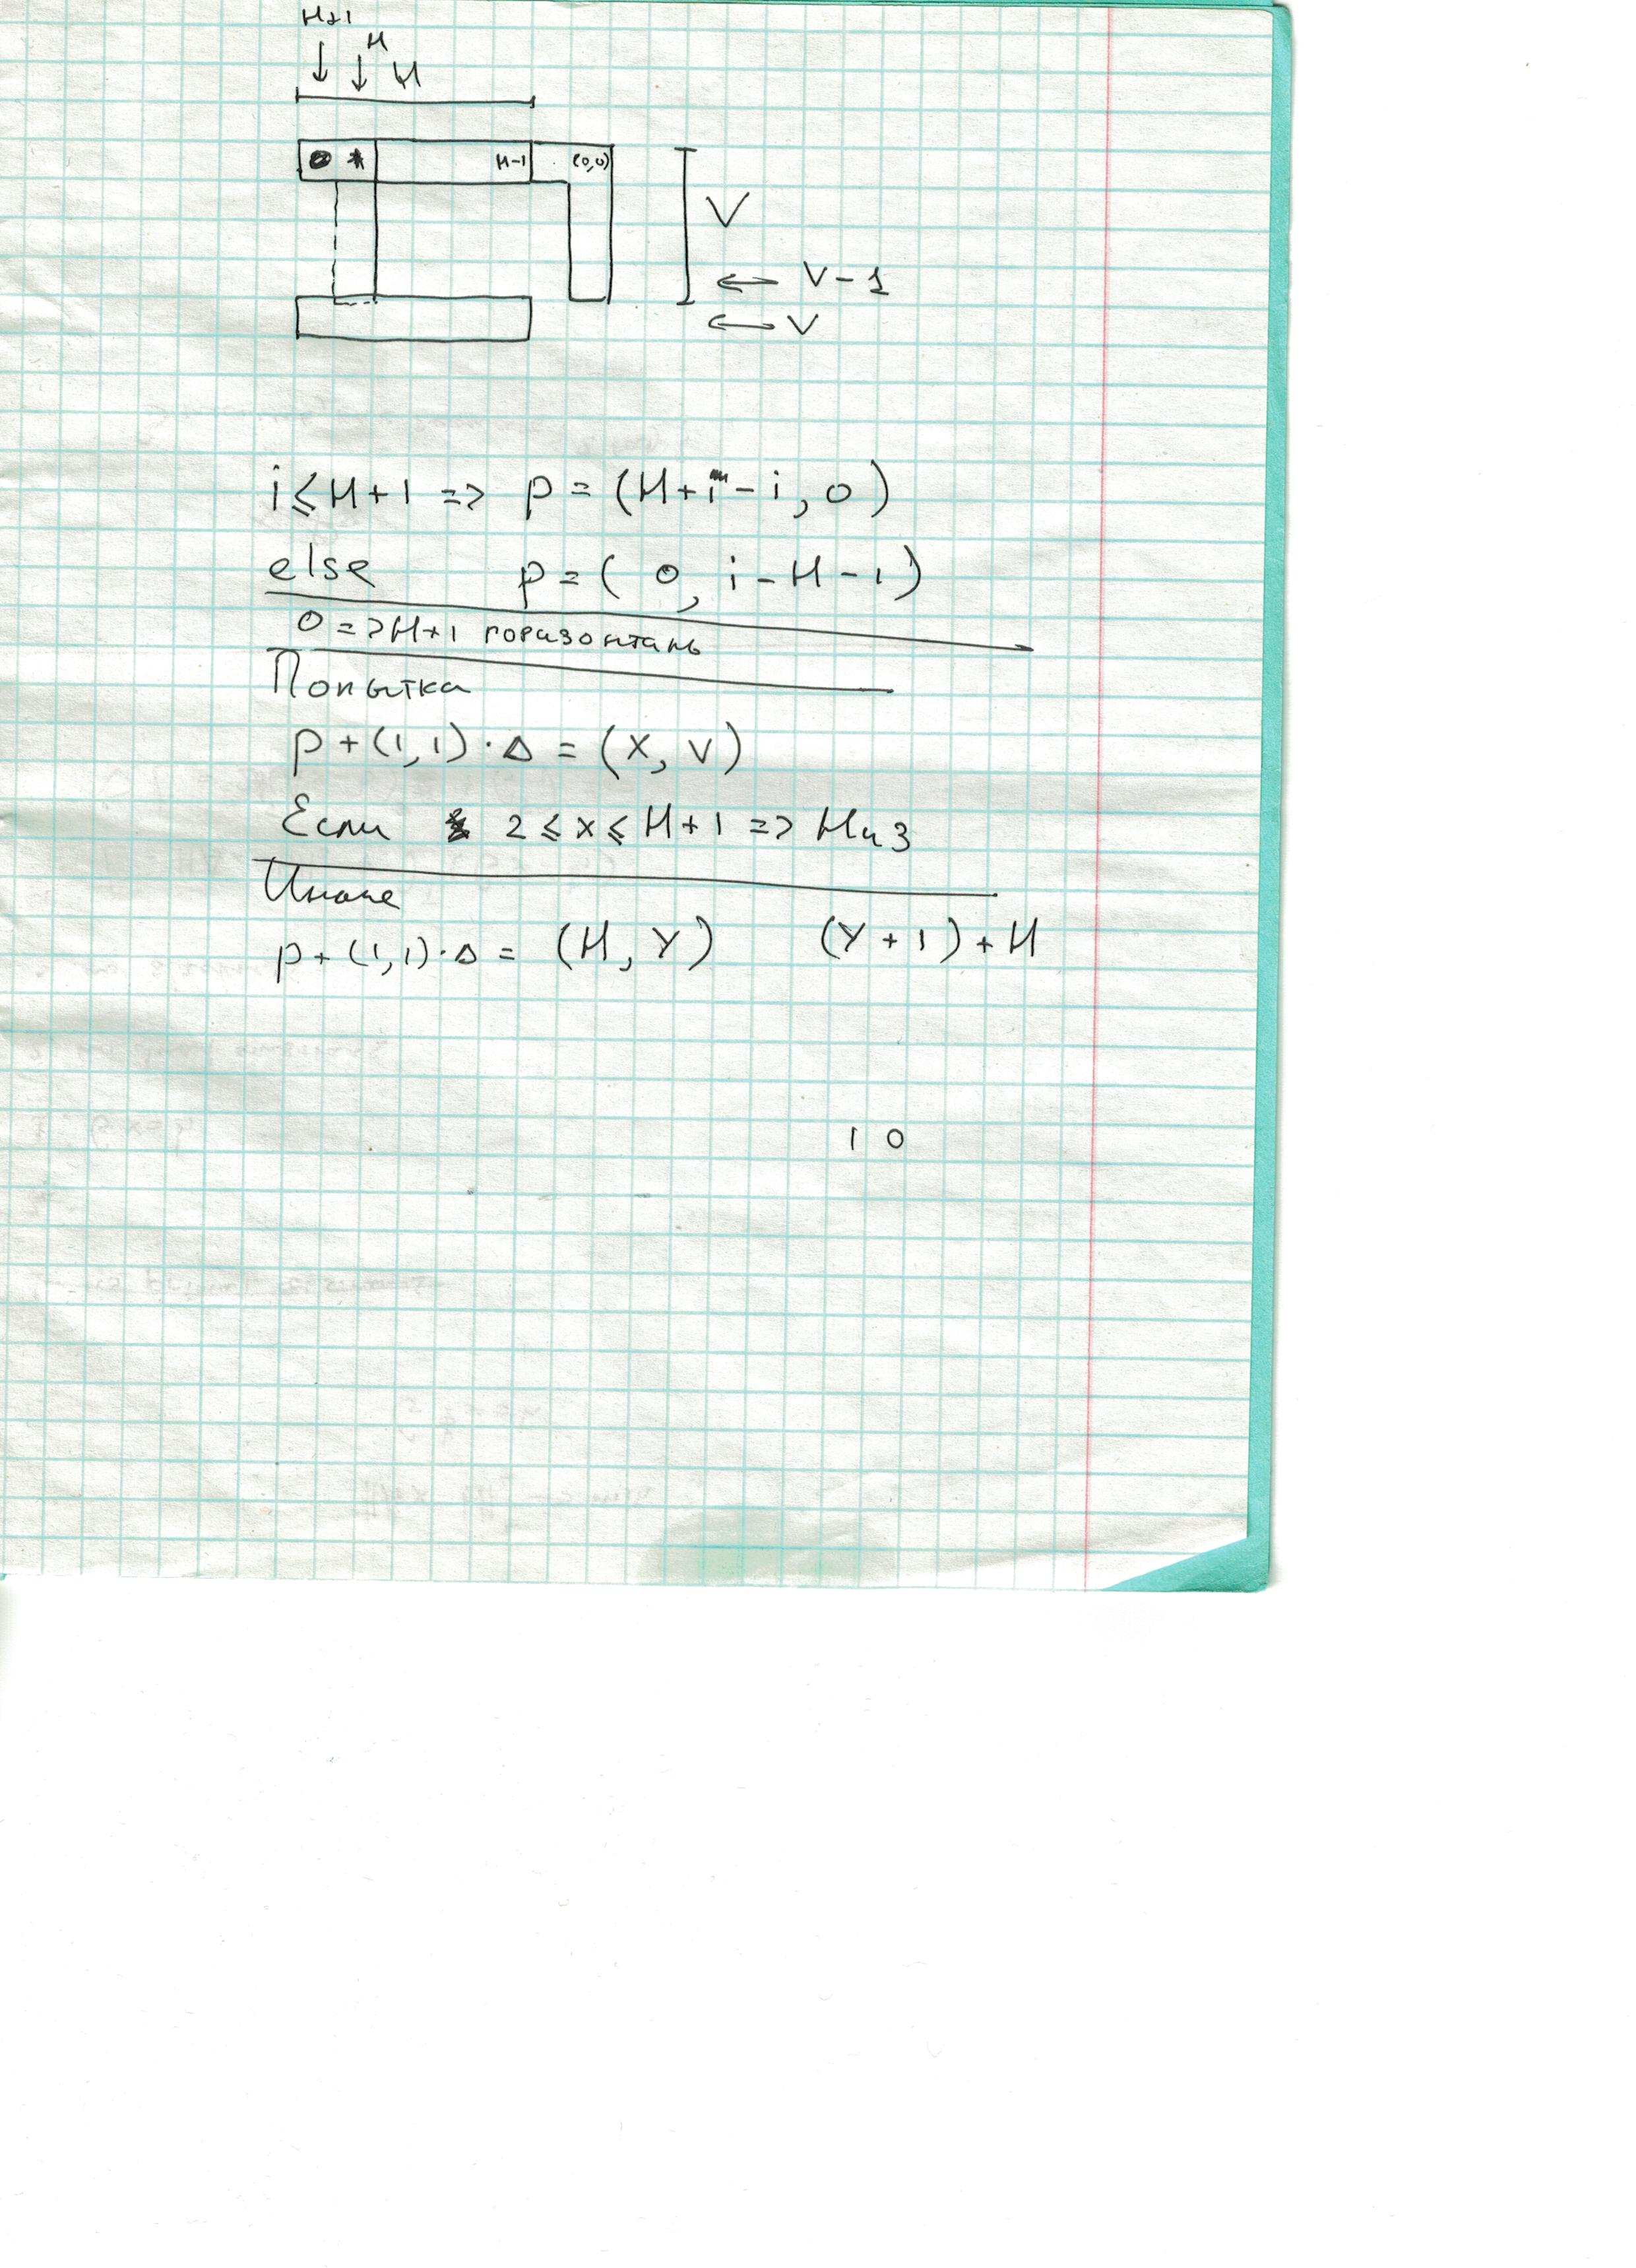 H+1
H
H
H-1 (0,0)
V
V-1
V
i ≤ H+1 => p = (H+1-i, 0)
else p = (0, i-H-1)
0 => H+1 горизонталь
Попытка
p + (1,1)·Δ = (X, V)
Если 2 ≤ x ≤ H+1 => Низ
Иначе
p + (1,1)·Δ = (H, Y) (Y+1)+H
1 0